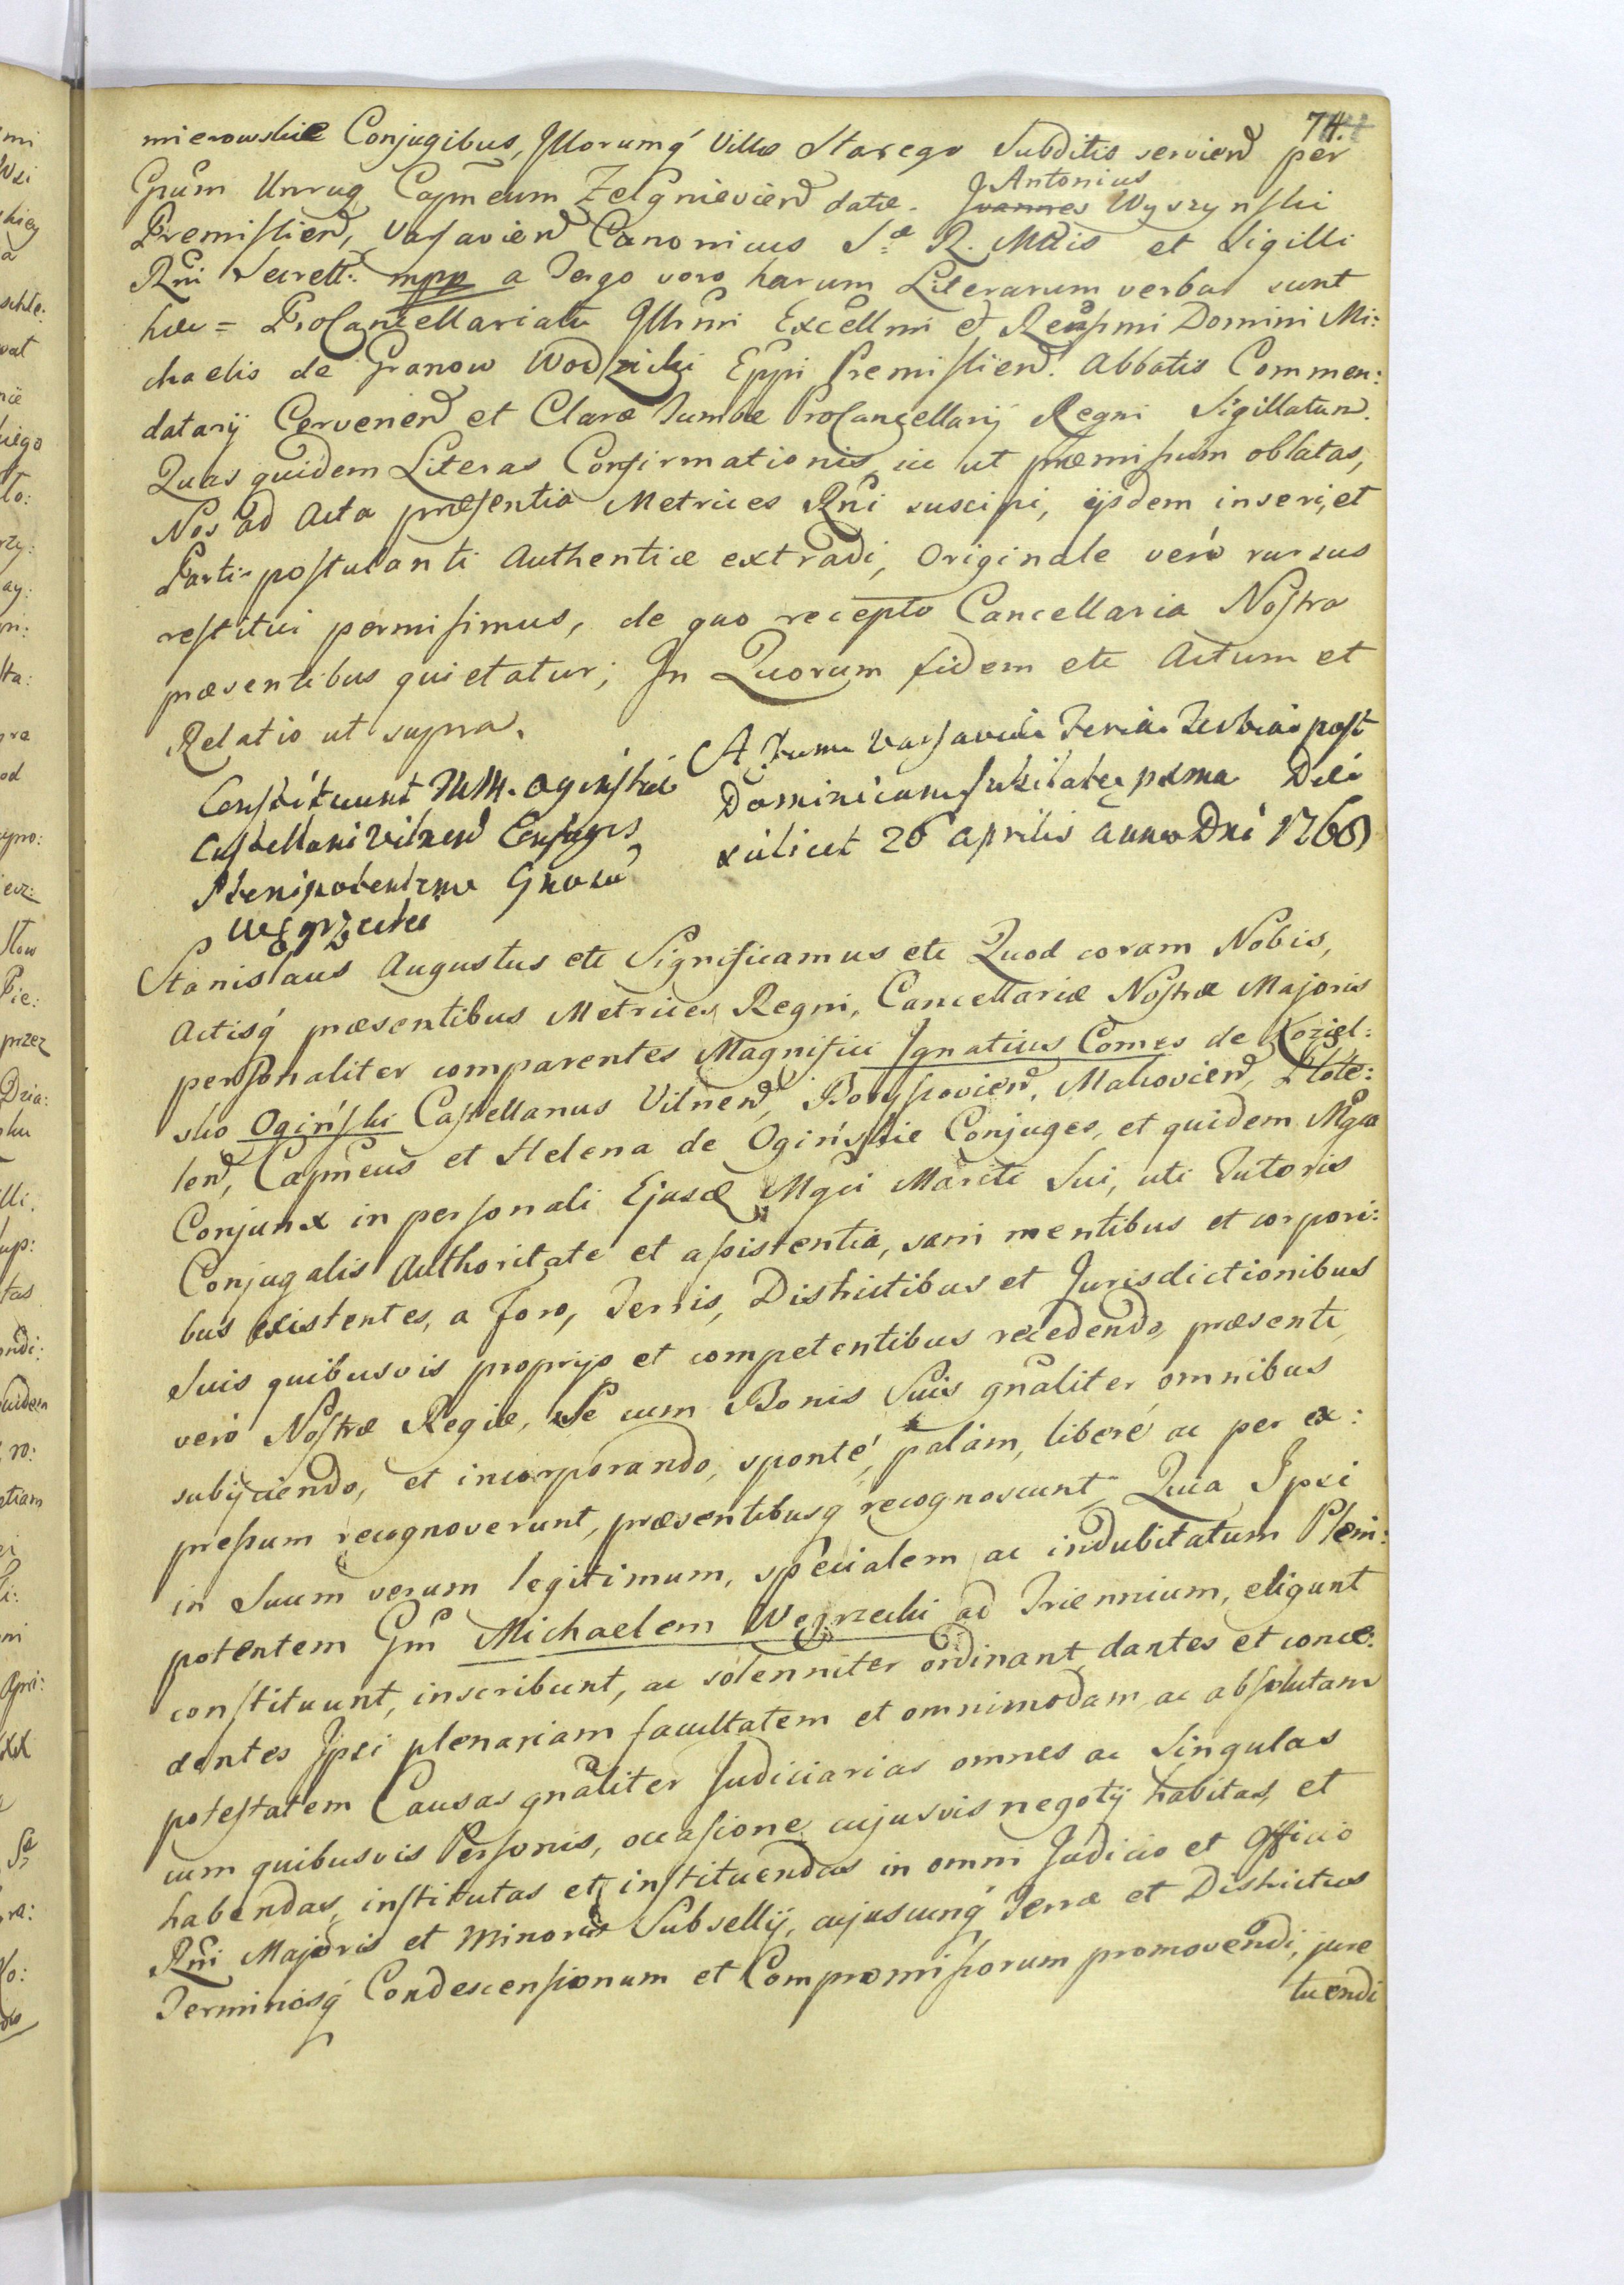 74.
mierowskie Conjugibus, Jllorumq́ Villæ Starego Subditis servien̄ per
Gn̄um Unrug Capneum Zelgnievien̄ datæ. J Antonius Joannes Wyszynski
Premislien̄, Varsavien̄ Canonicus S:æ R. Mt̄is et Sigilli
Rn̄i Secrett: mpp a Tergo vero harum Literarum verba sunt
hæc = ProCancellariatu Jllr̄mi Excell̄mi et Reveр̄mi Domini Mi:
chaelis de Granow Wodzicki Ep̄pi Premislien̄. Abbatis Commen:
datarij Cervenen̄ et Claræ Tumbæ ProCancellarij Regni Sigillatum.
Quas quidem Literas Confirmationis, uc ut præmissum oblatas,
Nos ad Acta præsentia Metrices Rn̄i suscipi, ijsdem inseri, et
Parti postulanti Authentice extradi, Originale verò rursus
restitui permisimus, de quo recepto Cancellaria Nostra
præsentibus quietatur; Jn Quorum fidem etc Actum et
Relatio ut supra.
Constituunt MM. Oginskie
Castellani Vilnen̄ Conjuges
Plenipotentem Gnosū
Węgrzecki
Actum Varsaviæ Feria Tertia post
Dominicam Jubilate pxma Die
scilicet 26 Aprilis Anno Dn̄i 1768
Stanislaus Augustus etc Significamus etc Quod coram Nobis,
Actisq́ præsentibus Metrices Regni, Cancellariæ Nostræ Majoris
personaliter comparentes Magnifici Jgnatius Comes de Koziel:
sko Ogiński Castellanus Vilnen̄, Borysovien̄, Makovien̄, Plote:
len̄, Capn̄eus et Helena de Ogińskie Conjuges, et quidem Mg̃a
Conjunx in personali Ejusd̄ Mgci Mariti Sui, uti Tutoris
Conjugalis Authoritate et assistentia, sani mentibus et corpori:
bus existentes, a Foro, Terris, Districtibus et Jurisdictionibus
Suis quibusvis proprijs et competentibus recedendo, præsenti,
verò Nostræ Regiæ, Se cum Bonis Suis gn̄aliter omnibus
subijciendo, et incorporando, sponté, palàm, liberé ac per ex:
pressum recognoverunt, præsentibusq́ recognoscunt Quia Ipsi
in Suum verum legitimum, specialem ac indubitatum Pleni:
potentem Gm̄ Michaelem Węgrzecki ad Triennium, eligunt
constituunt, inscribunt, ac solenniter ordinant, dantes et conce:
dentes Jpsi plenariam facultatem et omnimodam ac absolutam
potestatem Causas gn̄aliter Judiciarias omnes ac Singulas
cum quibusvis Personis, occasione cujusvis negotij habitas, et
habendas, institutas et instituendas in omni Judicio et Officio
Rn̄i Majoris et Minoris Subsellij, cujuscunq́ Terræ et Districtus
Terminosq́ Condescensionum et Compromissorum promovendi, jure
tuendi